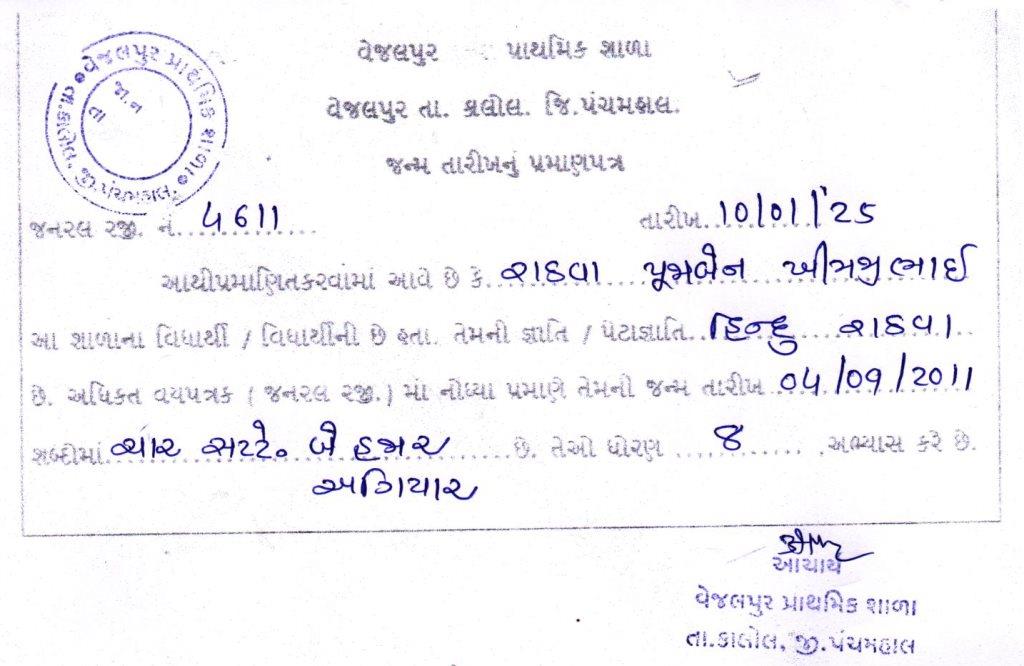 વેજલપુર પ્રાથમિક શાળા
વેજલપુર તા. કાલોલ. જિ.પંચમહાલ.
જન્મ તારીખનું પ્રમાણપત્ર
વેજલપુર પ્રાથમિક શાળા
તા.કાલોલ, જી.પંચમહાલ.
જા.ન
તા
જનરલ રજી. નં. 4611 તારીખ. 10/01/'25
આથીપ્રમાણિતકરવામાં આવે છે કે. રાઠવા પૂજાબેન ખીમજીભાઈ
આ શાળાના વિધાર્થી / વિધાર્થીની છે હતા. તેમની જ્ઞાતિ / પેટાજ્ઞાતિ. હિન્દુ રાઠવા
છે. અધિકત વયપત્રક ( જનરલ રજી. ) માં નોંધ્યા પ્રમાણે તેમનો જન્મ તારીખ 04/09/2011
શબ્દોમાં ચાર સપ્ટે. બે હજાર છે. તેઓ ધોરણ 8 અભ્યાસ કરે છે.
અગિયાર
આચાર્ય
વેજલપુર પ્રાથમિક શાળા
તા.કાલોલ, જી.પંચમહાલ